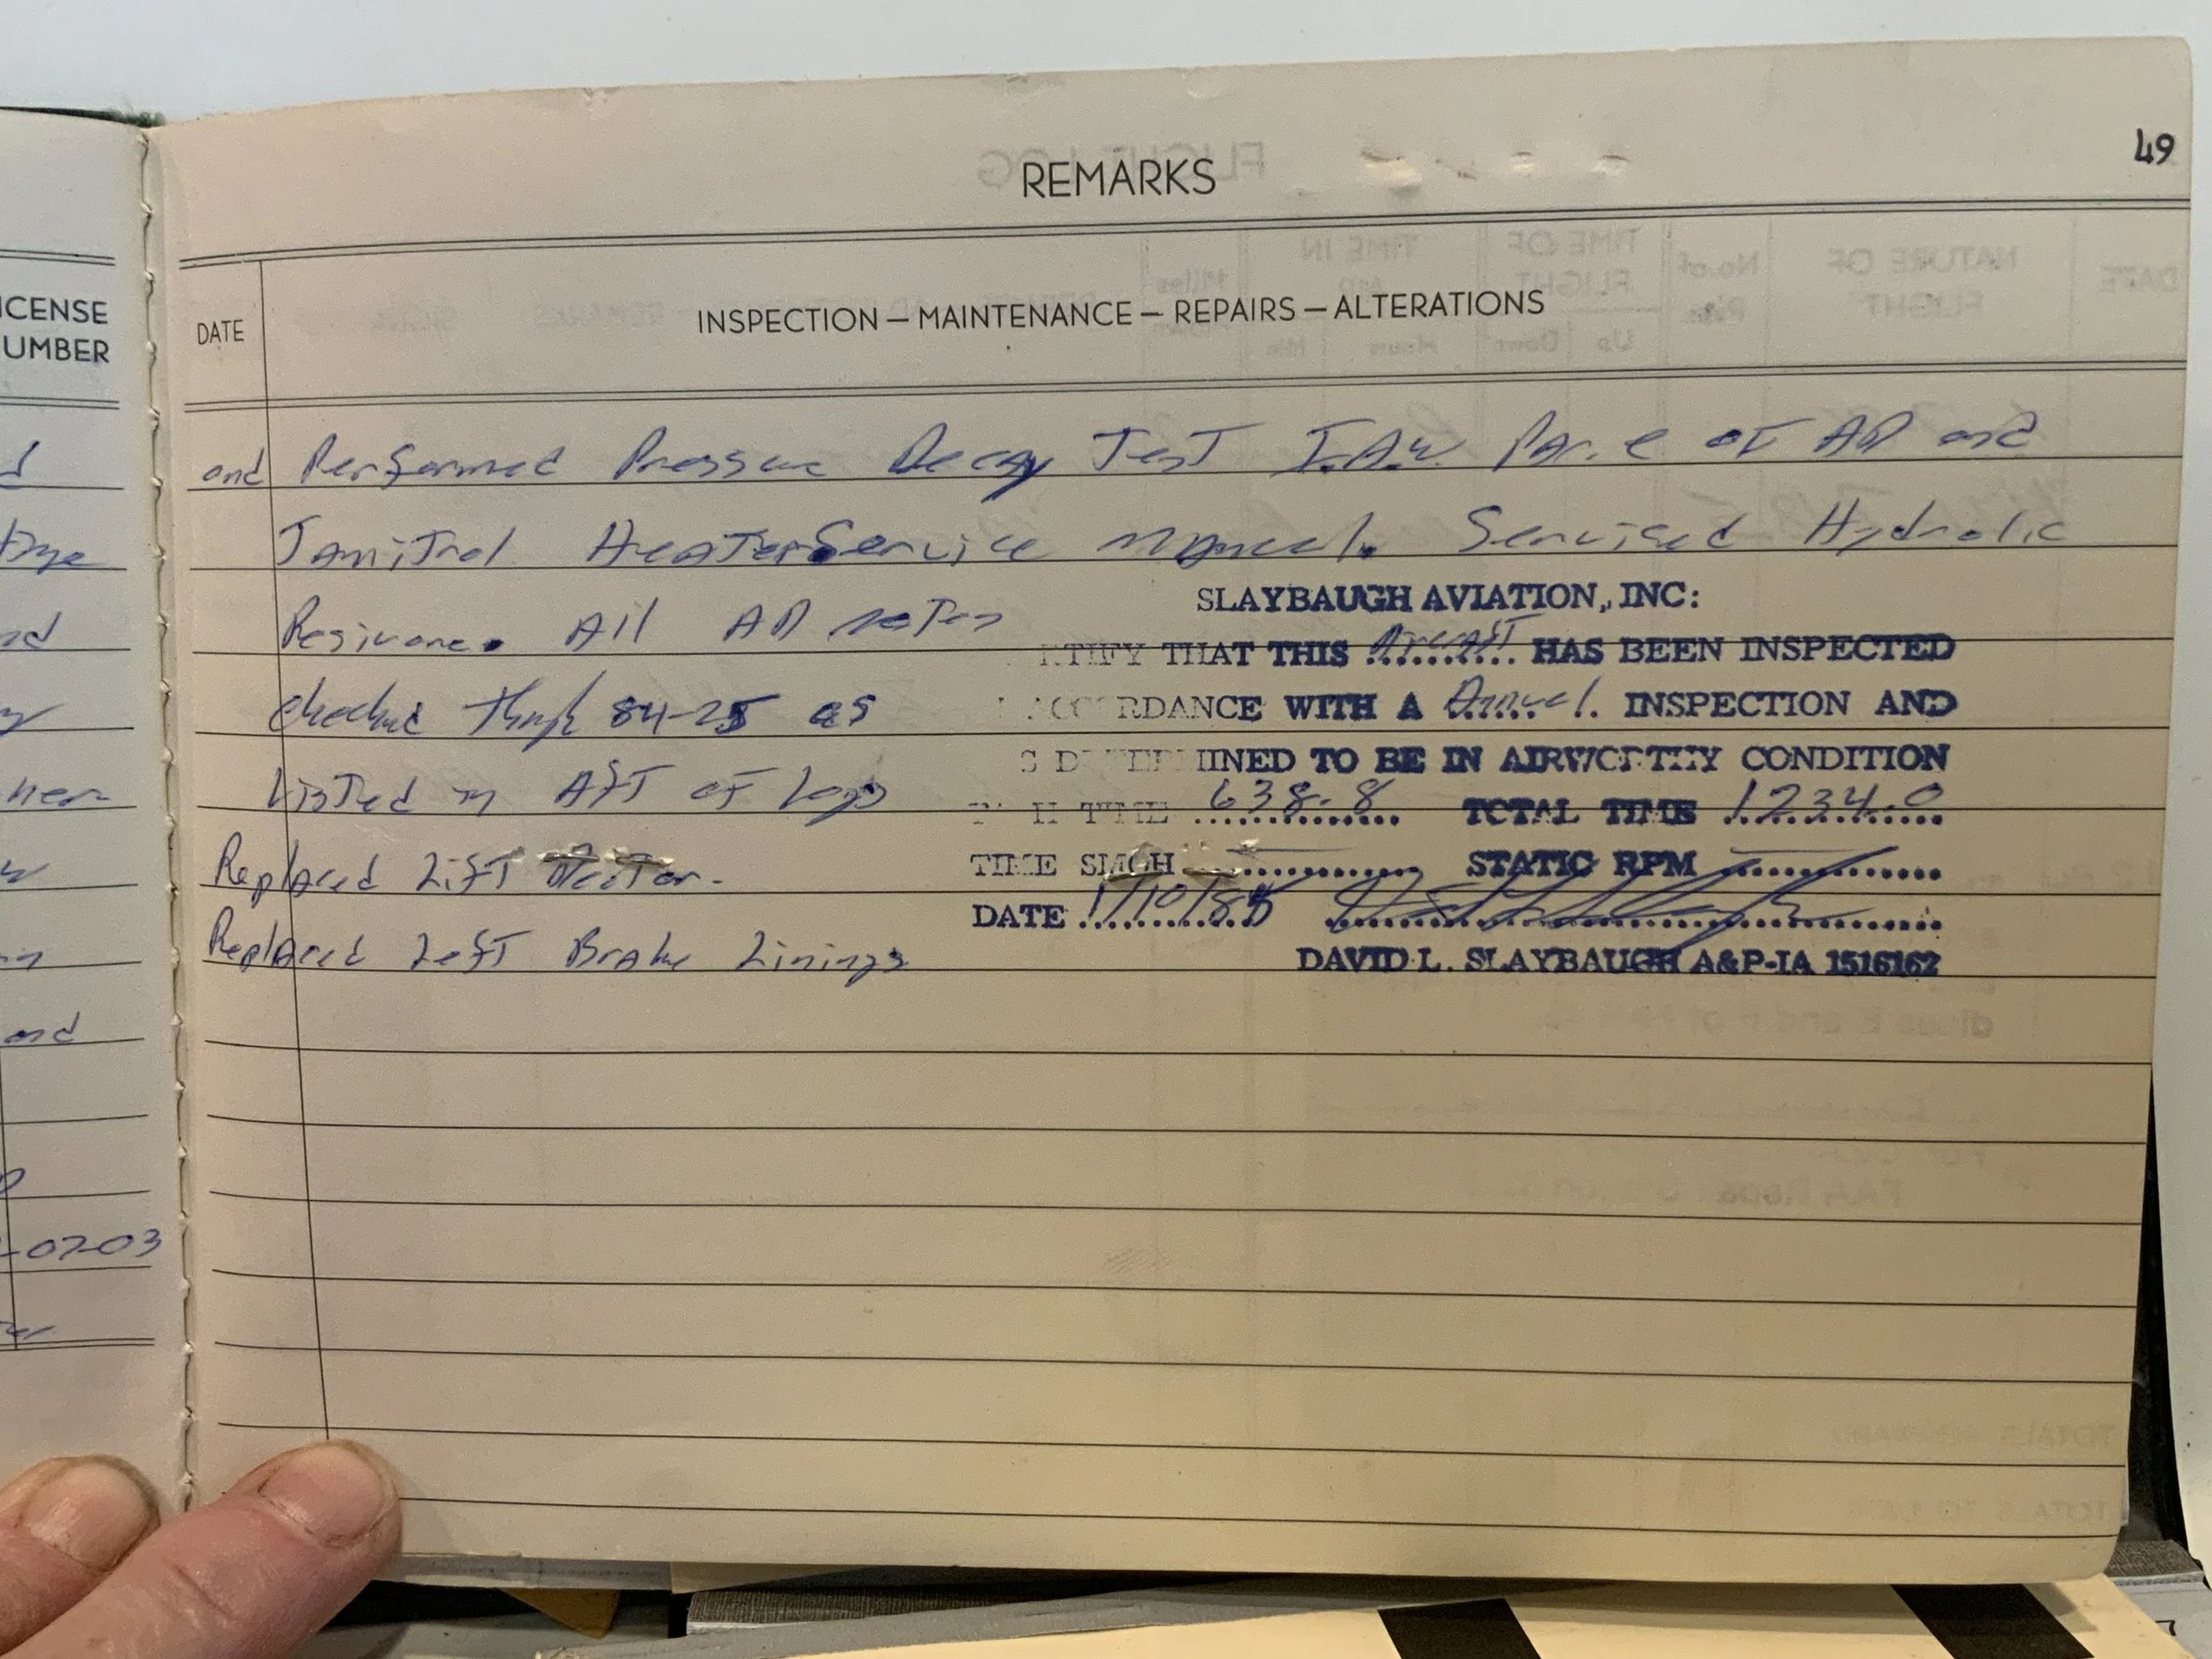 49
REMARKS
ICENSE
UMBER
DATE
INSPECTION — MAINTENANCE — REPAIRS — ALTERATIONS
and Performed Pressure Decay Test I.A.W. Par. e of AD and
Janitrol Heater Service manual. Servised Hydrolic
Resivore. All AD notes
checked through 84-25 as
Listed in Aft of Logs
Replaced Lift
Replaced Left Brake Linings
SLAYBAUGH AVIATION, INC:
TIFY THAT THIS Aircraft HAS BEEN INSPECTED
ACCORDANCE WITH A Annual. INSPECTION AND
S DETERMINED TO BE IN AIRWORTHY CONDITION
TACH TIME 638.8 TOTAL TIME 1234.0
TIME SMOH STATIC RPM
DATE 1/10/85
DAVID L. SLAYBAUGH A&P-IA 1516162
and
-07-03